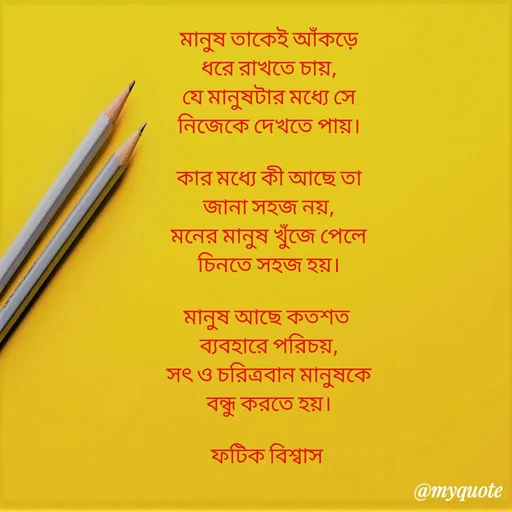 মানুষ তাকেই আঁকড়ে
ধরে রাখতে চায়,
যে মানুষটার মধ্যে সে
নিজেকে দেখতে পায়।
কার মধ্যে কী আছে তা
জানা সহজ নয়,
মনের মানুষ খুঁজে পেলে
চিনতে সহজ হয়।
মানুষ আছে কতশত
ব্যবহারে পরিচয়,
সৎ ও চরিত্রবান মানুষকে
বন্ধু করতে হয়।
ফটিক বিশ্বাস
@myquote